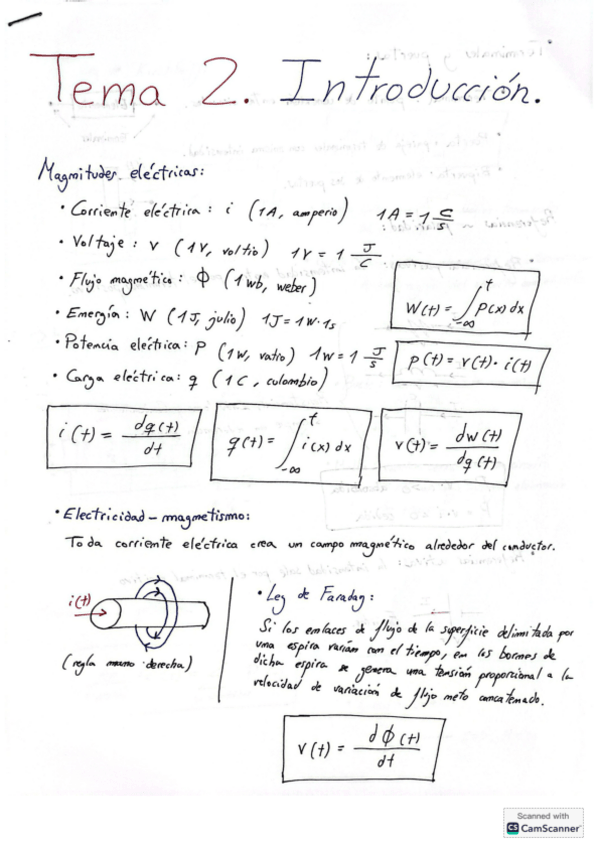 Tema 2. Introducción.
Magnitudes eléctricas:
• Corriente eléctrica: i (1A, amperio) 1A = 1 C/s
• Voltaje: v (1V, voltio) 1V = 1 J/C
• Flujo magnético: Φ (1 wb, weber)
• Energía: W (1J, julio) 1J = 1W·1s
W(t) = ∫_{-∞}^{t} p(x) dx
• Potencia eléctrica: P (1w, vatio) 1w = 1 J/s
p(t) = v(t) · i(t)
• Carga eléctrica: q (1C, culombio)
i(t) = dq(t)/dt
q(t) = ∫_{-∞}^{t} i(x) dx
v(t) = dw(t)/dq(t)
• Electricidad - magnetismo:
Toda corriente eléctrica crea un campo magnético alrededor del conductor.
i(t)
(regla mano derecha)
• Ley de Faraday:
Si los enlaces de flujo de la superficie delimitada por
una espira varían con el tiempo, en los bornes de
dicha espira se genera una tensión proporcional a la
velocidad de variación de flujo neto concatenado.
v(t) = dΦ(t)/dt
Scanned with
CS CamScanner